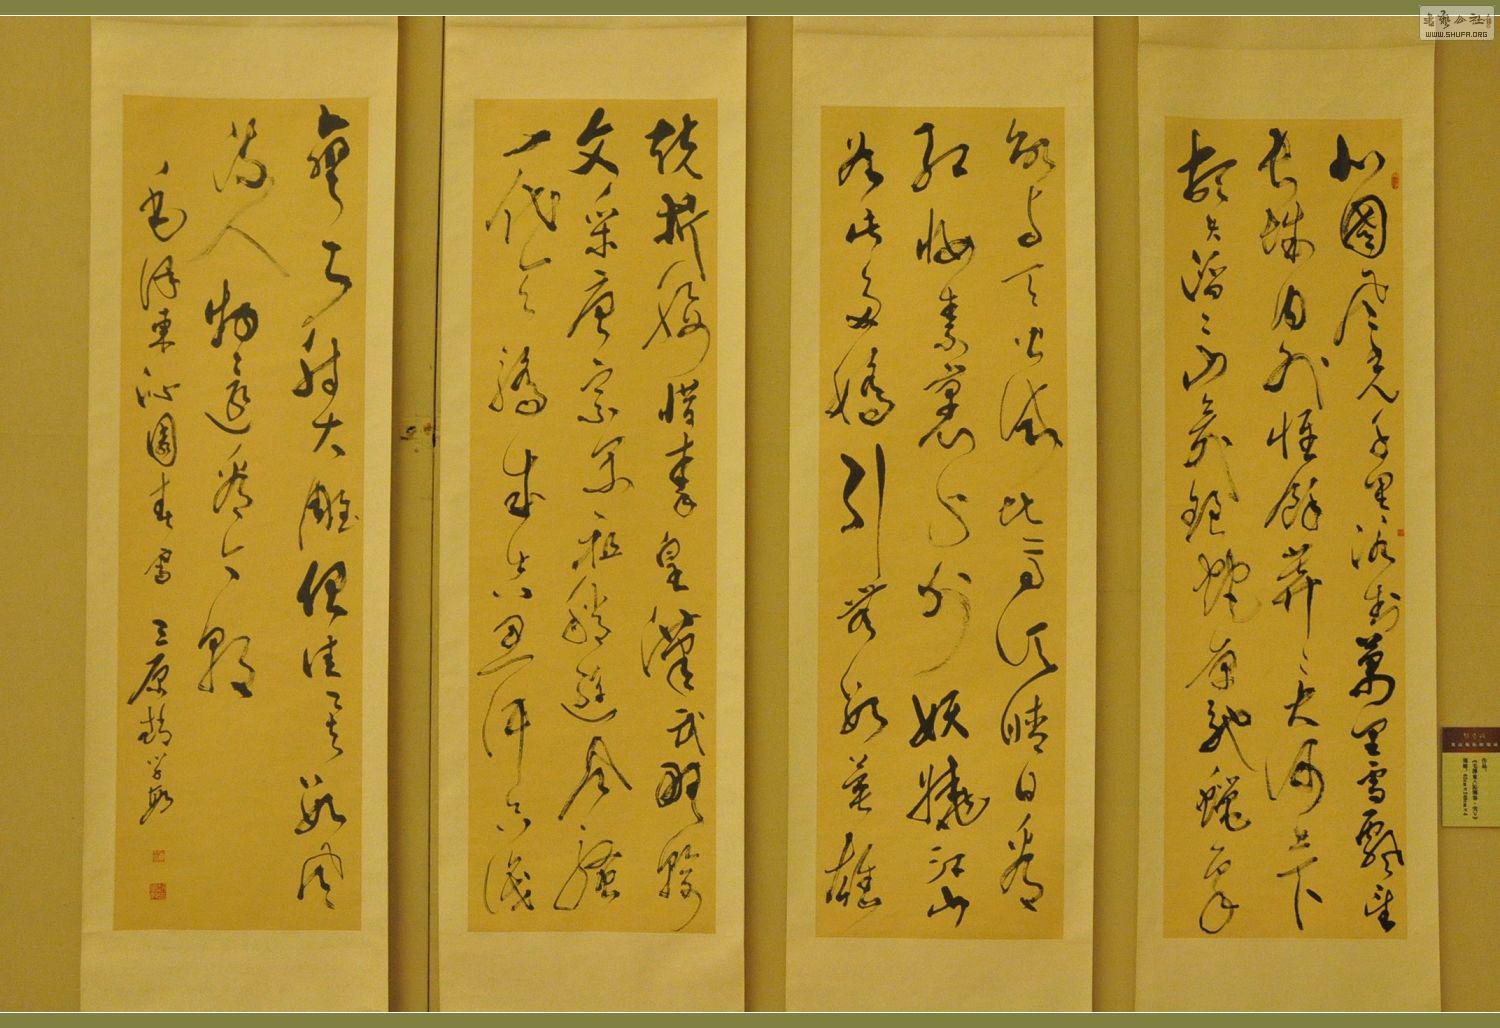 北國風光千里冰封萬里雪飄望
長城內外惟餘莽々大河上下
頓失滔々山舞銀蛇原馳蠟象
欲與天公試比高須晴日看
紅妝素裹分外妖嬈江山
如此多嬌引無數英雄
競折腰惜秦皇漢武略輸
文采唐宗宋祖稍遜風騷
一代天驕成吉思汗只識
彎弓射大雕俱往矣數風
流人物還看今朝
毛澤東沁園春雪 三原
書藝公社
WWW.SHUFA.ORG